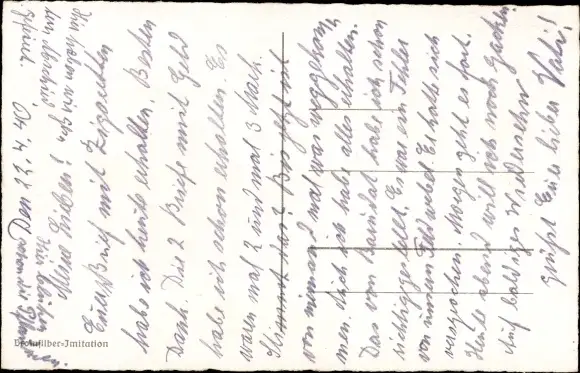 Den 23.4.40
Meine Lieben!
Euern Brief mit Zigaretten
habe ich heute erhalten. Besten
Dank. Die 2 Briefe mit Geld
habe ich schon erhalten. Es
waren mal 2 und mal 3 Mark.
Stimmt das? Bis jetzt ist
von meinem 2 mal was weggekom-
men. Auch ich habe alles erhalten.
Das vom habe ich schon
richtiggestellt. Es war ein Fehler
von einem Feldwebel. Er hatte sich
versprochen. Morgen geht es fort.
Heute abend will ich noch packen.
Auf baldiges Wiedersehn
grüßt Euch lieber Vati!
Bromsilber-Imitation